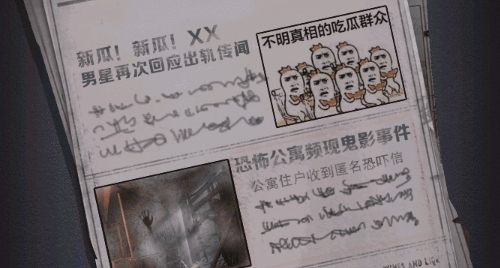 新瓜！新瓜！XX
男星再次回应出轨传闻
不明真相的吃瓜群众
恐怖公寓频现鬼影事件
公寓住户收到匿名恐吓信
AND